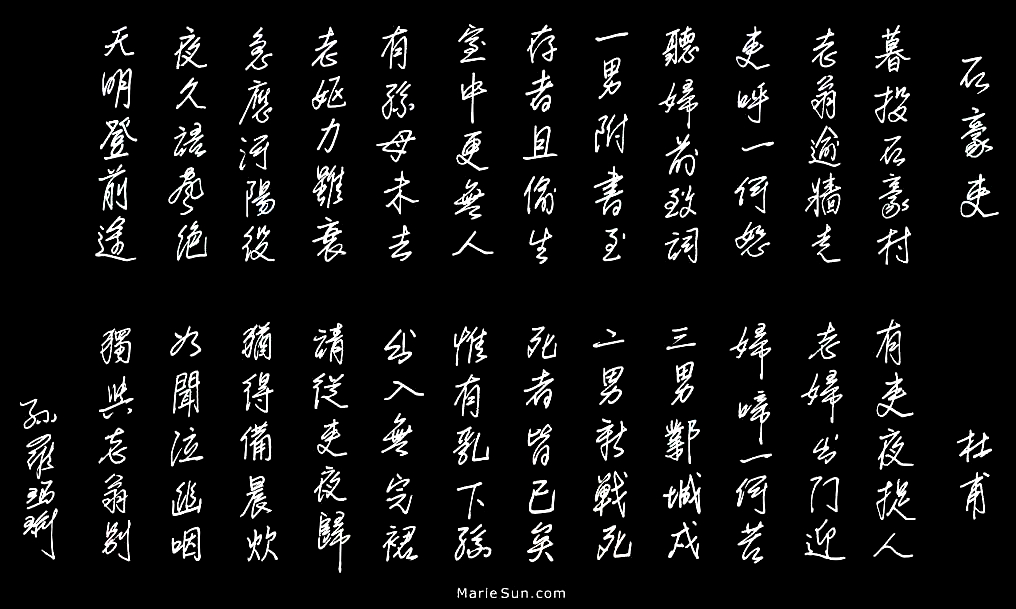 石豪吏 杜甫
暮投石豪村 有吏夜捉人
老翁逾牆走 老婦出門迎
吏呼一何怒 婦啼一何苦
聽婦前致詞 三男鄴城戍
一男附書至 二男新戰死
存者且偷生 死者皆已矣
室中更無人 惟有乳下孫
有孫母未去 出入無完裙
老嫗力雖衰 請從吏夜歸
急應河陽役 猶得備晨炊
夜久語聲絕 如聞泣幽咽
天明登前途 獨與老翁別
孫羅瑪琍
MarieSun.com